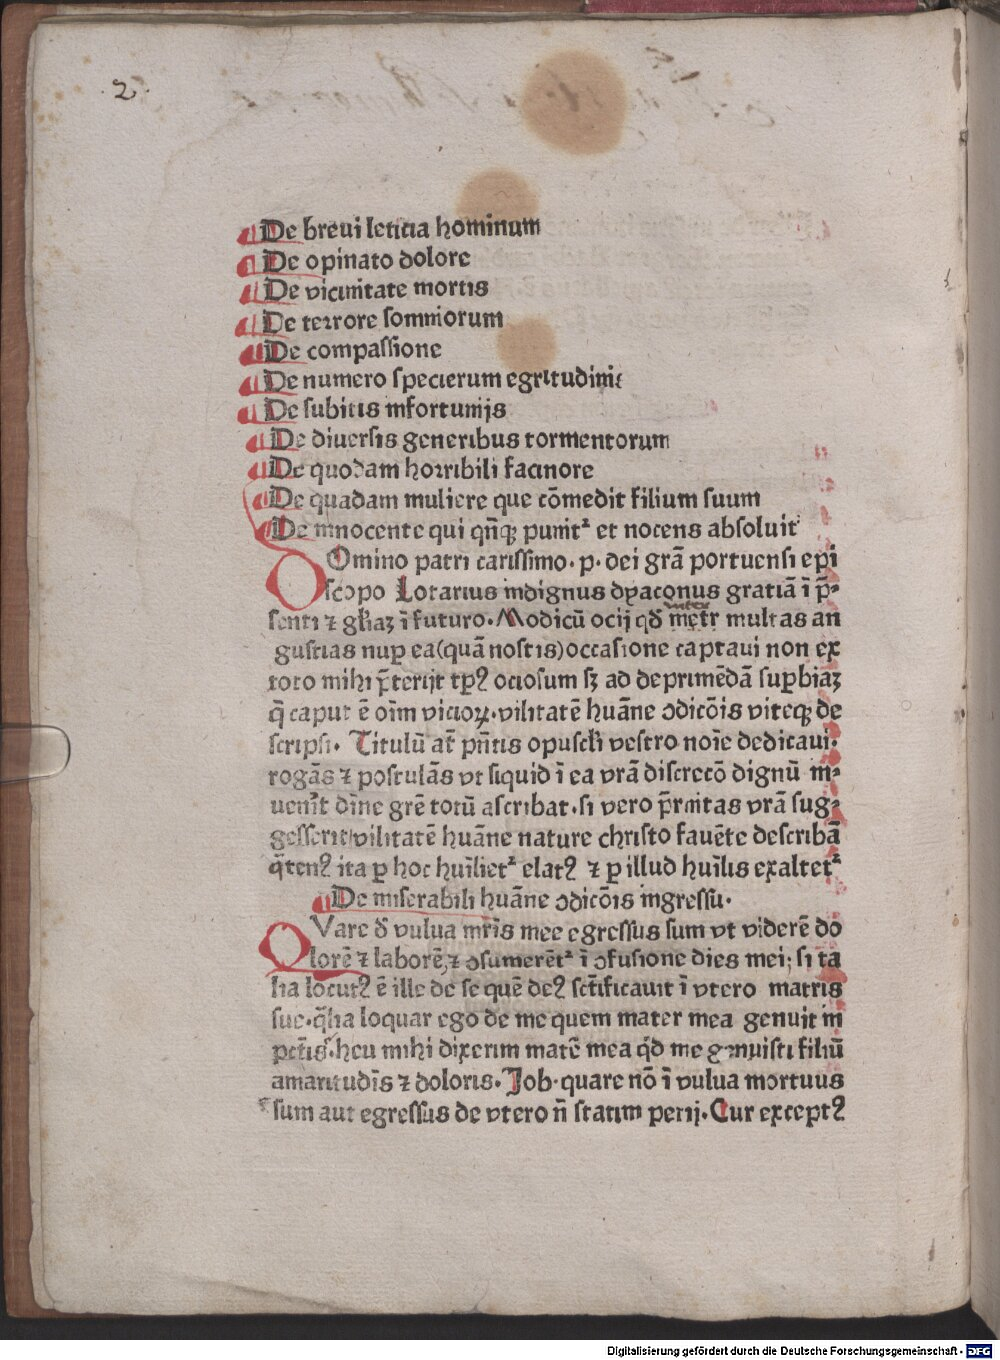 .2.
De breui leticia hominum
De opinato dolore
De vicinitate mortis
De terrore somniorum
De compassione
De numero specierum egritudinis
De subitis infortunijs
De diuersis generibus tormentorum
De quodam horribili facinore
De quadam muliere que cōmedit filium suum
De innocente qui qn̄qꝫ punitᷣ et nocens absoluit
Omino patri carissimo. p. dei grā portuensi epi
scopo Lotarius indignus dyaconus gratiā ī p̄-
senti ⁊ gl̓iaꝫ ī futuro. Modicū ocij qd̄ inter multas an
gustias nuꝑ ea (quā nostis) occasione captaui non ex
toto mihi p̄terijt tꝑꝰ ociosum sꝫ ad deprimēdā suꝑbiaꝫ
q̄ caput ē oīm vicioꝝ. vilitatē huāne ꝯdicōis viteqꝫ de
scripsi. Titulū at̄ pn̄tis opuscl̓i vestro noīe dedicaui.
rogās ⁊ postulās vt siquid ī ea vrā discrecō dignū in-
uenīt dīne grē totū ascribat. si vero p̄rnitas vrā sug-
gesserit vilitatē huāne nature christo fauēte describā
q̄tenꝰ ita ꝑ hoc huīlietᷣ elatꝰ ⁊ ꝑ illud huīlis exaltetᷣ
De miserabili huāne ꝯdicōis ingressu.
QVare d̄ vulua mr̄is mee egressus sum vt viderē do
lorē ⁊ laborē, ⁊ ꝯsumerēt᷑ ī ꝯfusione dies mei; si ta
lia locutꝰ ē ille de se quē deꝰ sct̄ificauit ī vtero matris
sue. q̄lia loquar ego de me quem mater mea genuit in
pct̄is. heu mihi dixerim matē mea qd̄ me genuisti filiū
amaritudīs ⁊ doloris. Job. quare nō ī vulua mortuus
sum aut egressus de vtero n̄ statim perij. Cur exceptꝰ
Digitalisierung gefördert durch die Deutsche Forschungsgemeinschaft - DFG